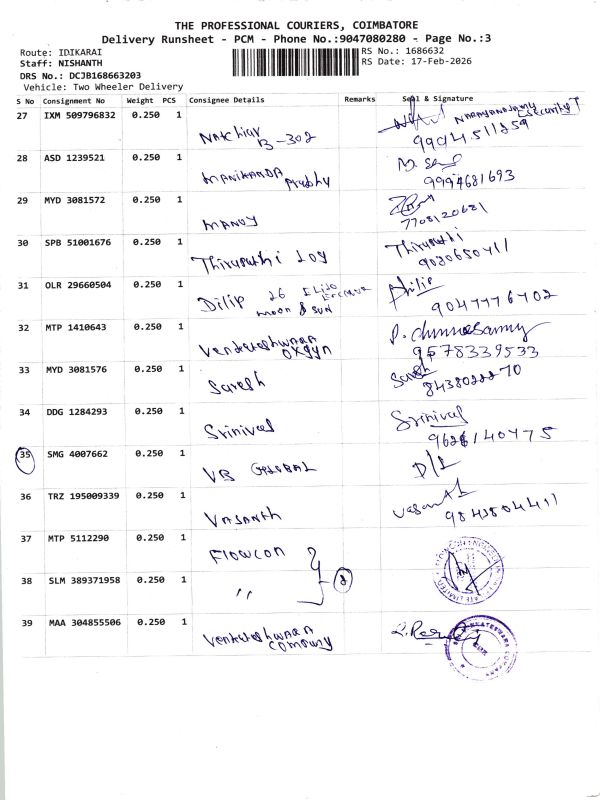 THE PROFESSIONAL COURIERS, COIMBATORE
Delivery Runsheet - PCM - Phone No.:9047080280 - Page No.:3
Route: IDIKARAI
RS No.: 1686632
Staff: NISHANTH
RS Date: 17-Feb-2026
DRS No.: DCJB168663203
Vehicle: Two Wheeler Delivery
S No Consignment No Weight PCS Consignee Details Remarks Seal & Signature
27 IXM 509796832 0.250 1
Natchiar B-302
28 ASD 1239521 0.250 1
Manikanda prabhu
9994681693
29 MYD 3081572 0.250 1
MANOJ
7708120681
30 SPB 51001676 0.250 1
Thirupathi
Thirupathi
9030650411
31 OLR 29660504 0.250 1
Dilip 26
moon & sun
Philip
9047776702
32 MTP 1410643 0.250 1
Venkateshwaraa
oxgyn
P. chinnasamy
9578339533
33 MYD 3081576 0.250 1
Saresh
Saresh
34 DDG 1284293 0.250 1
Srinivas
Srinivas
9626140475
35 SMG 4007662 0.250 1
VB GLOBAL
D/L
36 TRZ 195009339 0.250 1
VASANTH
Vasant
9843804411
37 MTP 5112290 0.250 1
Flowcon
38 SLM 389371958 0.250 1
"
39 MAA 304855506 0.250 1
Venkateshwaraa
company